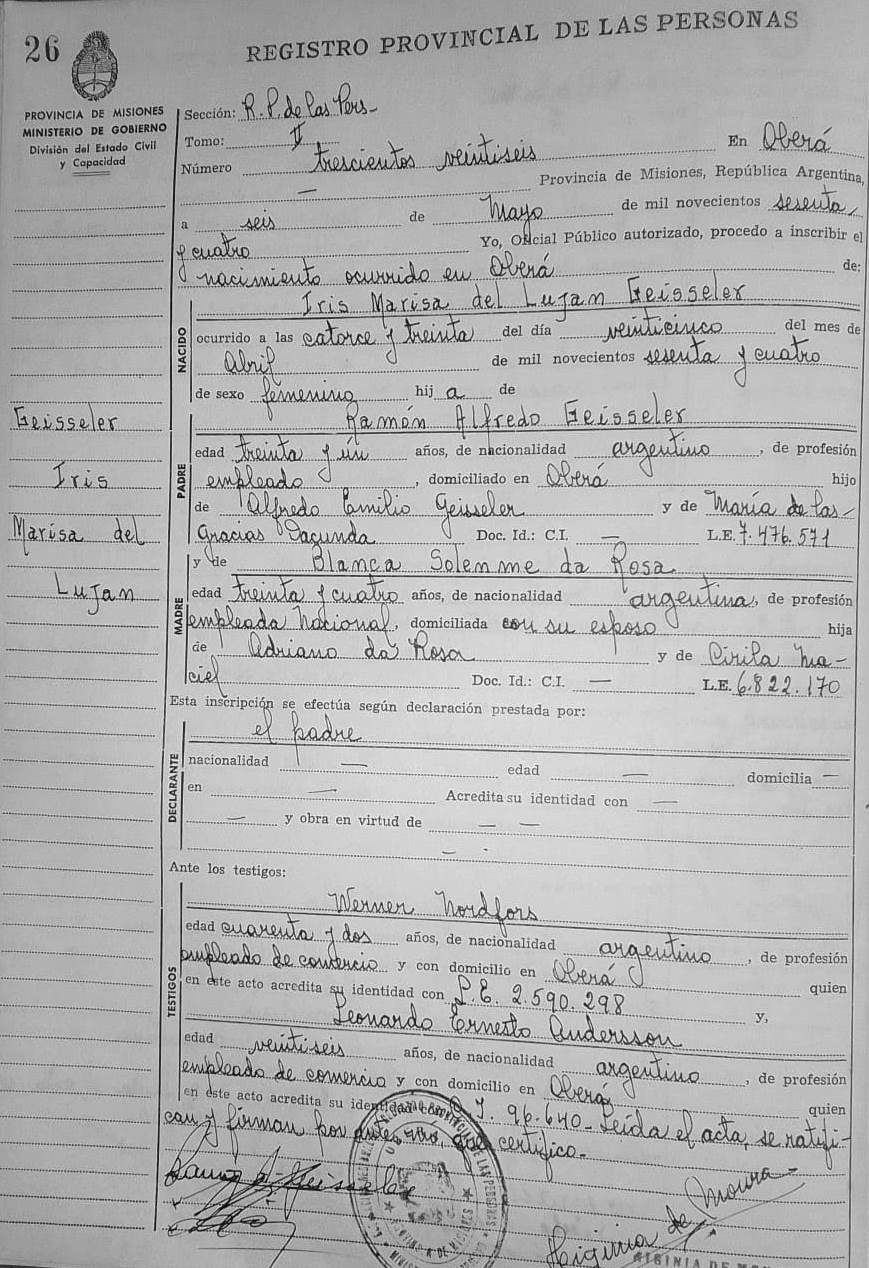 26
REGISTRO PROVINCIAL DE LAS PERSONAS
PROVINCIA DE MISIONES
MINISTERIO DE GOBIERNO
División del Estado Civil
y Capacidad
Geisseler
Iris
Marisa del
Lujan
Sección: R. P. de las Pers-
Tomo: II
Número trescientos veintiseis En Oberá
— Provincia de Misiones, República Argentina,
a seis de Mayo de mil novecientos sesenta
y cuatro Yo, Oficial Público autorizado, procedo a inscribir el
nacimiento ocurrido en Oberá de:
NACIDO
Iris Marisa del Lujan Geisseler
ocurrido a las catorce y treinta del día veinticinco del mes de
Abril de mil novecientos sesenta y cuatro
de sexo femenino hij a de
PADRE
Ramón Alfredo Geisseler
edad treinta y ún años, de nacionalidad argentino, de profesión
empleado, domiciliado en Oberá hijo
de Alfredo Emilio Geisseler y de María de las
Gracias Doc. Id.: C.I. — L.E. 7.476.571
y de Blanca Solemme da Rosa
MADRE
edad treinta y cuatro años, de nacionalidad argentina, de profesión
empleada Nacional, domiciliada con su esposo hija
de Adriano da Rosa y de Cirila Ma-
ciel Doc. Id.: C.I. — L.E. 6.822.170
Esta inscripción se efectúa según declaración prestada por:
DECLARANTE
el padre
nacionalidad — edad — domicilia —
en — Acredita su identidad con —
— y obra en virtud de — —
—
Ante los testigos:
TESTIGOS
Werner Nordfors
edad cuarenta y dos años, de nacionalidad argentino, de profesión
empleado de comercio y con domicilio en Oberá quien
en este acto acredita su identidad con L.E. 2.590.298 y,
Leonardo Ernesto Andersson
edad veintiseis años, de nacionalidad argentino, de profesión
empleado de comercio y con domicilio en Oberá quien
en este acto acredita su identidad con 96.640- Leída el acta, se ratifi-
can y firman por ante mí, que certifico-
Ramon A. Geisseler
Higinia de Moura
HIGINIA DE